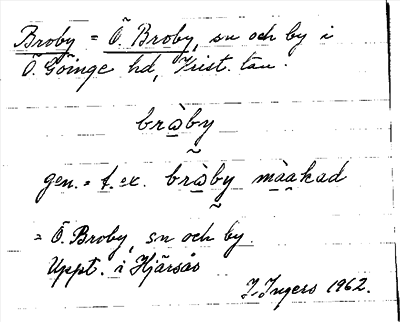 Broby = Ö. Broby, sn och by i
Ö. Göinge hd, Krist. län.
bràby
gen. = t. ex. bràby màakad
= Ö. Broby, sn och by.
Uppt. i Hjärsås
I. Ingers 1962.